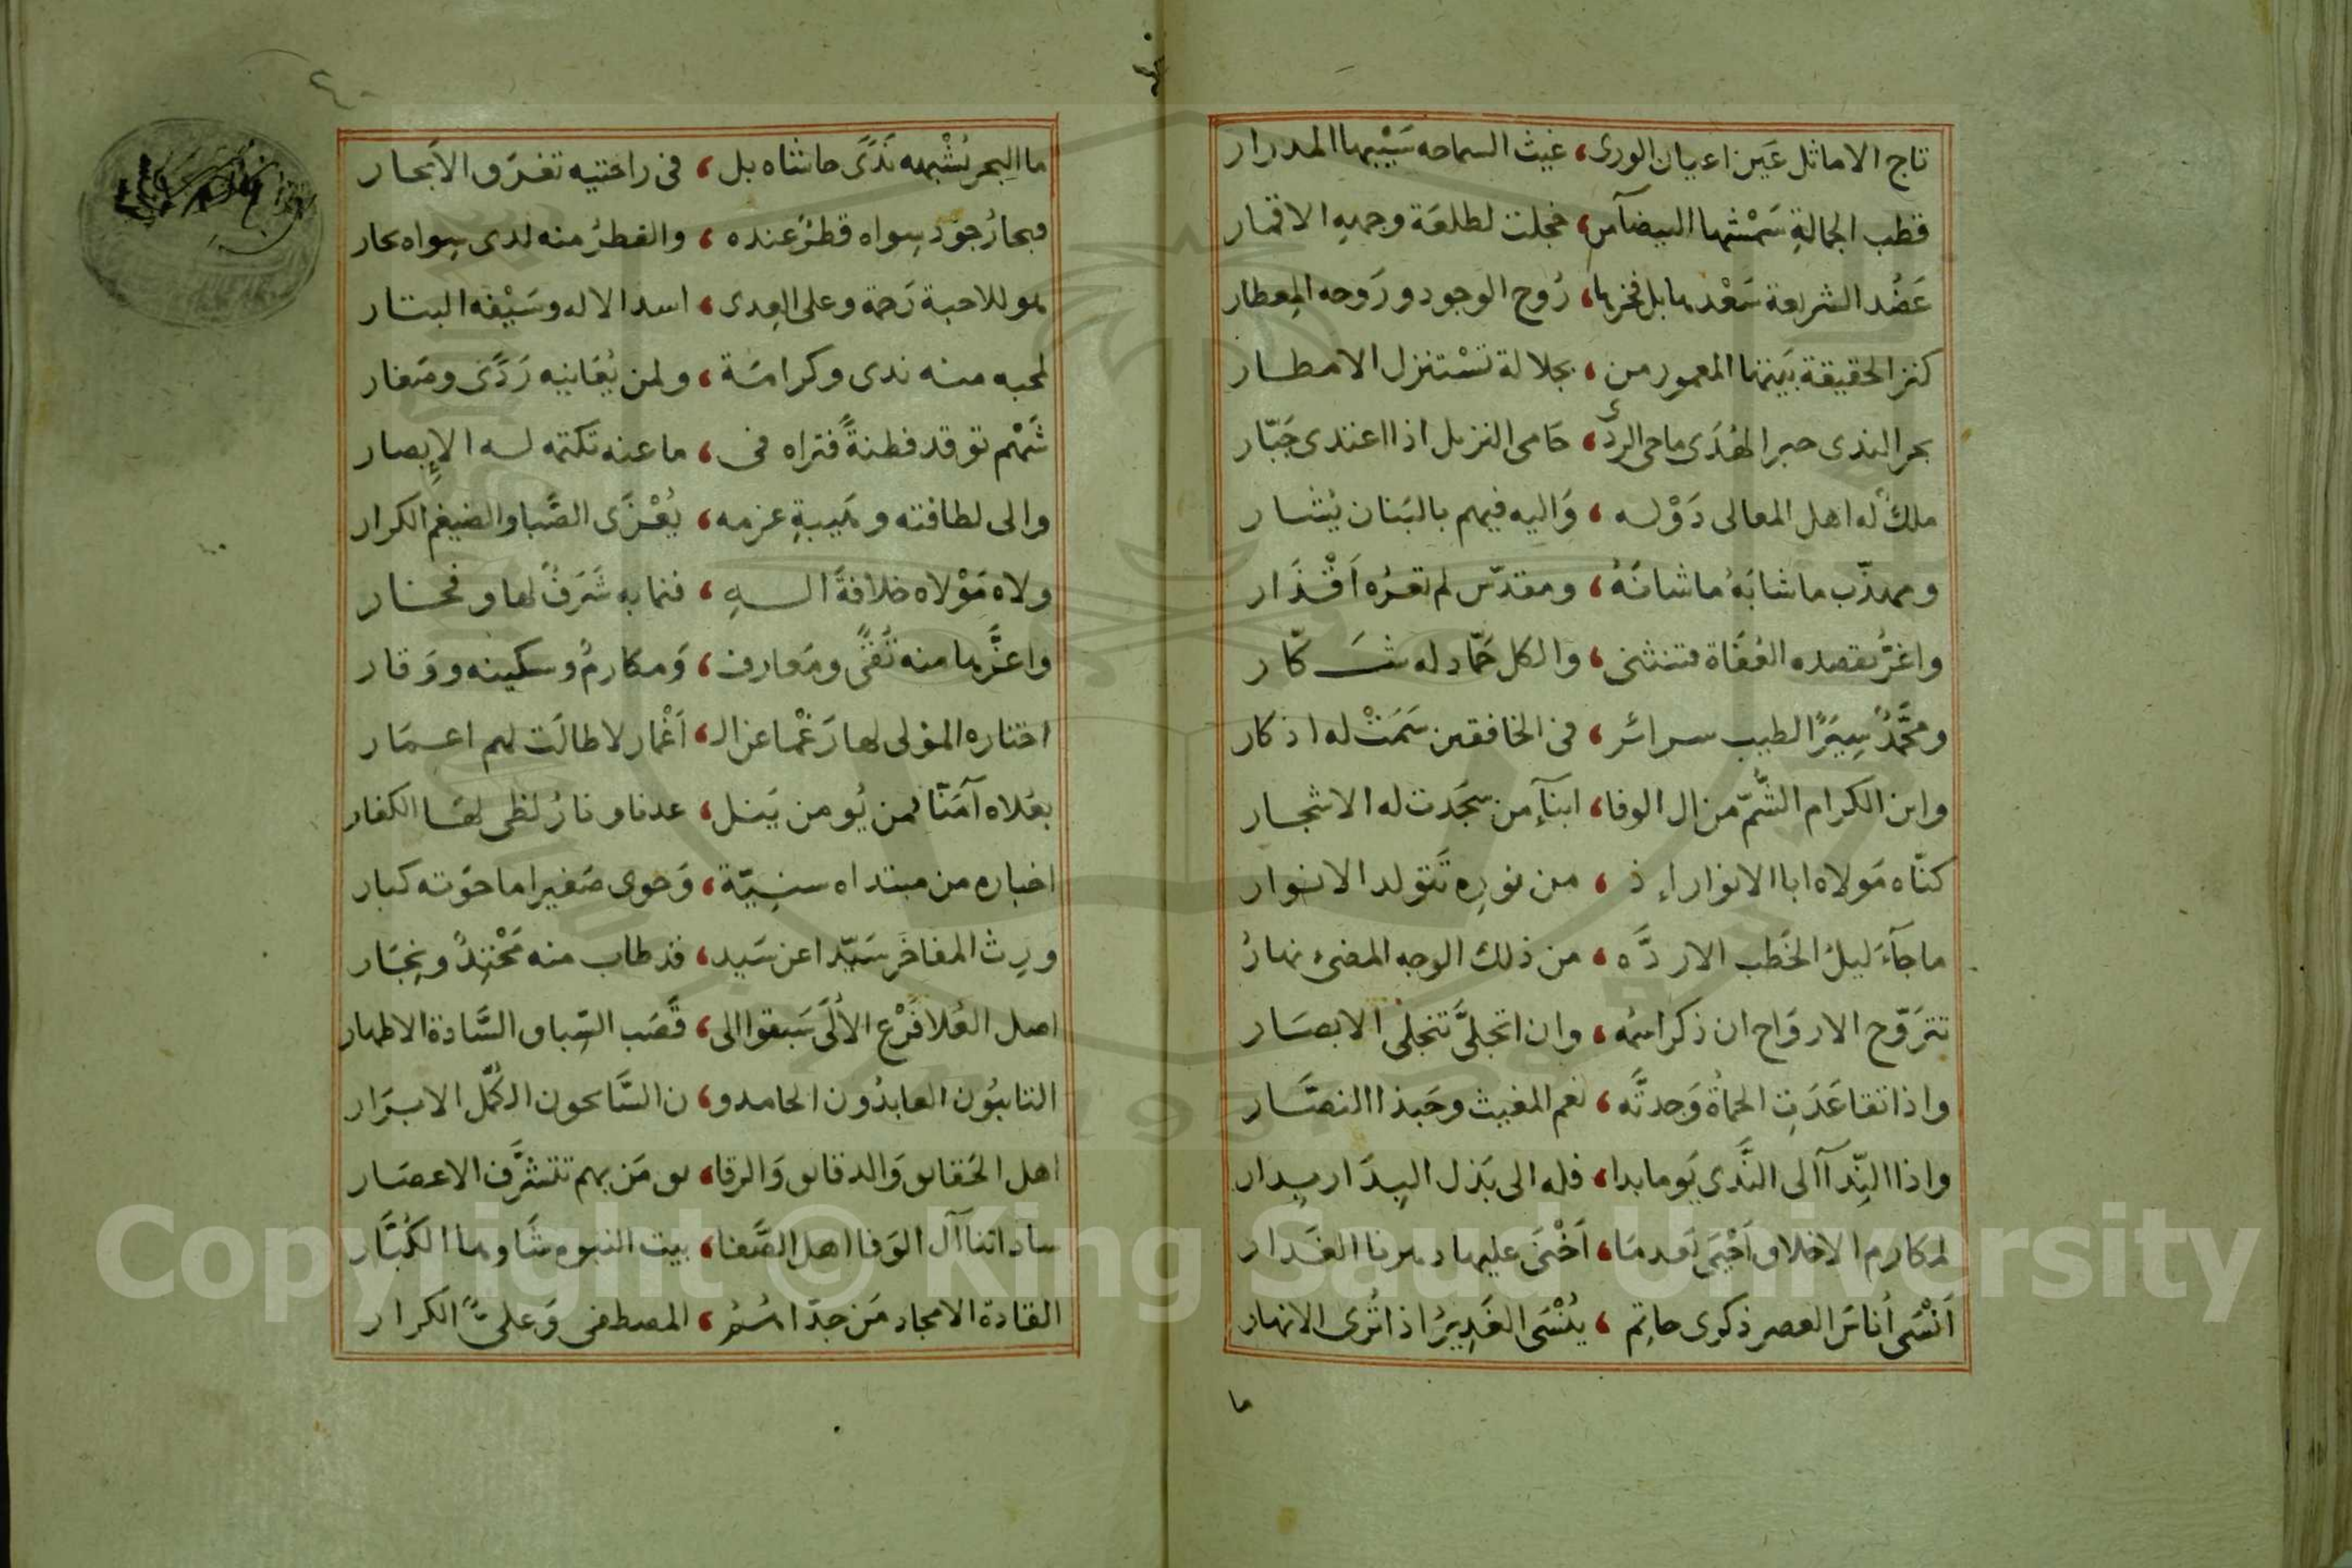 تاج الاماثل عَين اعيان الورى، غيث السماحه سَيْبها المدرار
قطب الجمالةِ شمْسُها البيضآمن، خجلت لطلعَة وجههِ الاقمار
عَضُد الشريعة سَعْدها بل فخرها، رُوح الوجود ورَوحه المِعطار
كنز الحقيقة بَيتها المعمور من، بجلالة تسْتنزل الامطار
بحر الندى حبر الهُدَى ماحى الردى، حَامى النزيل اذا اعتدى جَبّار
ملكٌ له اهل المعالى دَوْلـه، وَاليه فيهم بالبَنان يُشار
ومهذّب ما شابَهُ ما شانَهُ، ومقدّس لم تعرُه اَقْذَار
واغرُّ تقصده العُفَاة فتنثنى، والكل حَمّاد له شَكّار
ومحَّمدٌ سِيَرًا لطيب سرائر، فى الخافقين سَمَتْ له اذكار
وابن الكرام الشُّمّ من ال الوفا، ابنآءِ من سجَدت له الاشجار
كنّاه مَولاه ابا الانوار إذ، من نورِه تَتولد الانوار
ما جآءَ ليلُ الخَطب الا ردَّه، من ذلك الوجه المضىء نهارُ
تترَوّح الارواح ان ذكر اسمُه، وان اتجلَّى تنجلى الابصَار
واذا تقاعَدَتِ الحماةُ وَجدتَّه، نعم المغيث وحَبذا النصَّار
واذا النِّدآ الى النَّدى يَوما بدا، فله الى بَذل البِدَار بِدار
لمكارم الاخلاق اَحْيَى بَعدمَا، اَخْنَى عليها دهرنا الغَدار
اَنْسَى اُناسَ العصر ذكرى حاتِم، يُنْسَى الغَدِيرُ اذا تُرى الانهار
ما
ما البحر يُشْبهه نَدًى حاشاه بل، فى راحتيه تغرَق الاَبحار
فبحارُ جود سِواه قطرٌ عنده، والقطرُ منه لدى سِواه بحار
هو للاحبة رَحمة وعلى العِدى، اسد الاله وسَيْفه البتار
لمحبه منه ندى وكرامَة، ولمن يُعَانيه رَدًى وصَغار
شَهْم توقد فطنةً فتراه فى، ما عنه تكتمه لـه الإبصار
والى لطافته وهَيبةِ عزمه، يُعْزَى الصَّبا والضيغم الكرار
ولاه مَوْلاه خلافةً الـه، فنما به شَرَفٌ لها وفخار
واعزَّها منه تُقًى ومَعارف، وَمكارمٌ وسكينه ووَقار
اختاره المولى لها رَغْما عن الـ، اَغْمار لا طالَت لهم اعمَار
بعُلاه آمَنّا فمن يُومن يَنل، عدنا ونارُ لظى لقَا الكفار
اخباره من مبتداه سنِيّة، وَحوى صَغيرا ما حوَته كبار
ورِث المفاخَر سَيّدا عن سَيد، قد طاب منه مَحْتِدٌ ونِجَار
اصل العُلا فَرْع الاُلَى سَبقوا الى، قَصَب السِّباق السَّادة الاطهار
التائبُون العابدُون الحامدو، ن السَّائحون الكُمّل الابرَار
اهل الحَقائق وَالدقائق وَالرقا، ئق مَن بهم تتشرَّف الاعصَار
ساداتنا آل الوَفا اهل الصَّفا، بيت النبوه شَاوها الكُبَّار
القادة الامجاد مَن جدّاهُمُ، المصطفى وَعلىٌّ الكرار
Copyright © King Saud University
1957